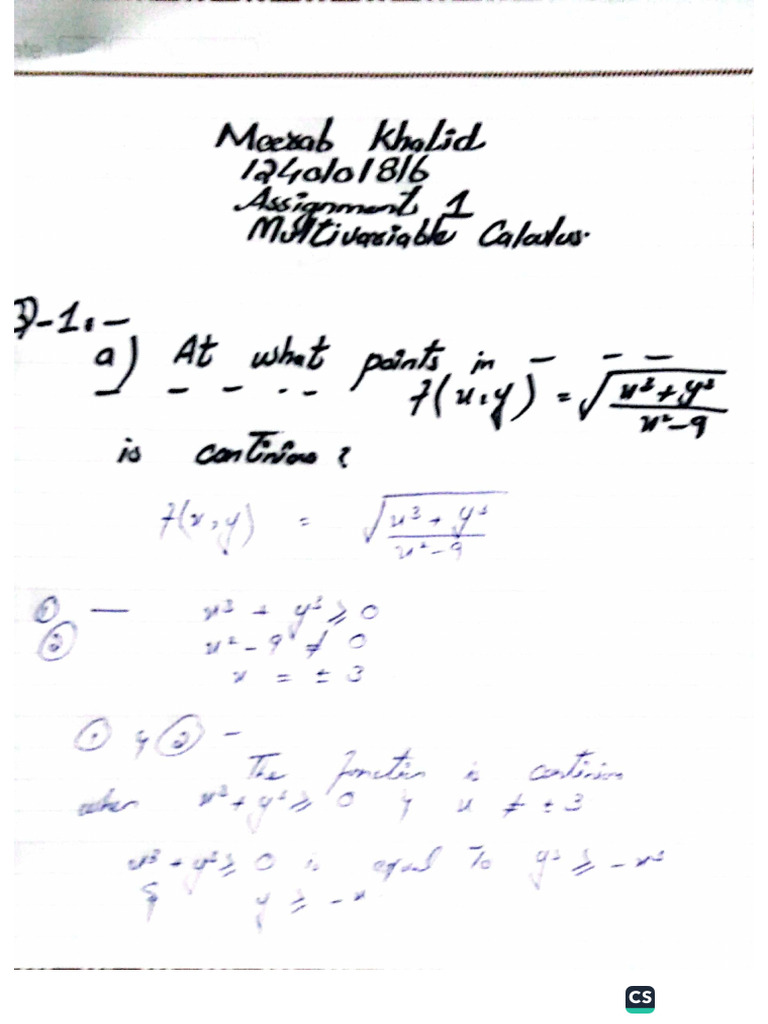 Meerab Khalid
1240101816
Assignment 1
Multivariable Calculus.
Q-1. -
a) At what points in - - -
- - - - - f(x,y) = √x³+y³
x²-9
is continious ?
f(x,y) = √x³ + y³
x²-9
① — x³ + y³ ≥ 0
② x² - 9 ≠ 0
x = ± 3
① & ② -
The function is continious
when x³ + y³ ≥ 0 & x ≠ ± 3
x³ + y³ ≥ 0 is equal to y³ ≥ -x³
& y ≥ -x
CS